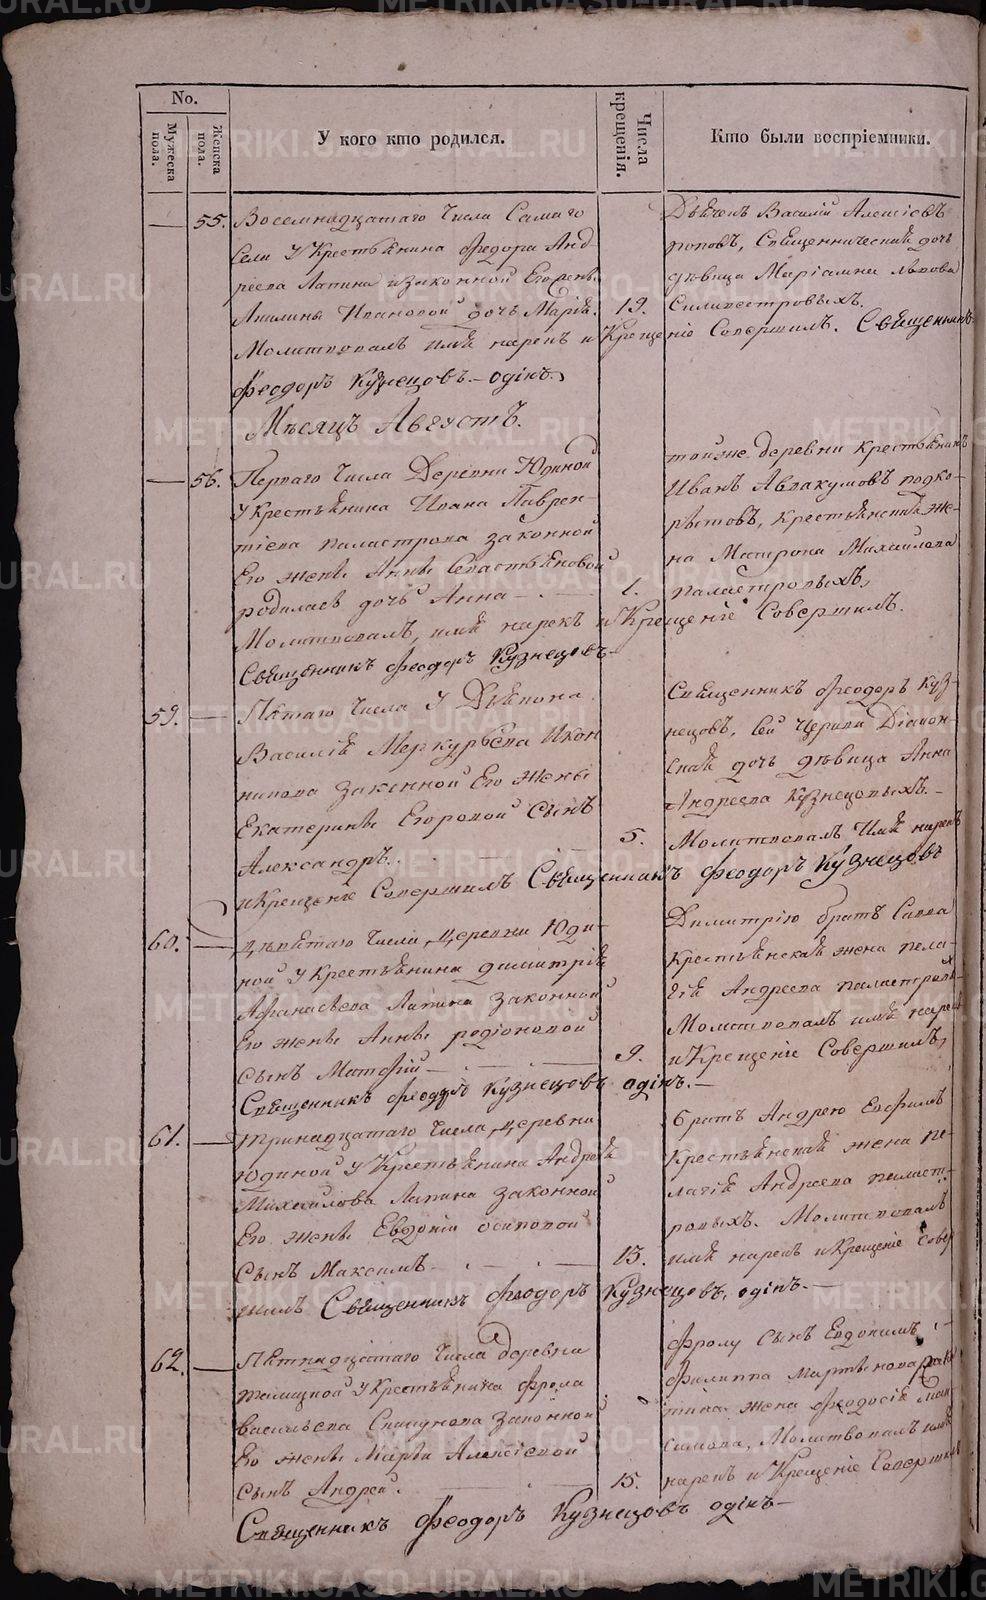 No.
Мужеска пола.
Женска пола.
У кого кто родился.
Числа крещенія.
Кто были воспріемники.
55. Восемнадцатаго Числа Самаго
Села У Крестьянина Федора Анд-
реева Лапина Законной Его
Ивановой дочь Марія.
Молитвовалъ имя нарекъ и Крещеніе Совершилъ. Священникъ
Феодоръ Кузнецовъ. — одинъ.
19.
Дьячекъ Василій Алексіевъ
поповъ, Священническая дочь
дѣвица Маріамна Львова
Силивестровыхъ.
Мѣсяцъ Августъ.
56. Перваго Числа Деревни Юдиной
у Крестьянина Ивана Лаврен-
тіева законной
Его жены Анны Севастьяновой
родилась дочь Анна
Молитвовалъ, имя нарекъ и Крещеніе Совершилъ.
Священникъ Феодоръ Кузнецовъ
1.
тойже деревни Крестьянинъ
Иванъ Авакумовъ подко-
рытовъ, Крестьянская же-
на Матрона Михайлова
59. Пятаго Числа У Дьякона
Василія Меркурьева Икон
никова законной Его Жены
Екатерины Егоровой Сынъ
Александръ.
и Крещеніе Совершилъ Священникъ Феодоръ Кузнецовъ
5.
Священникъ Феодоръ Куз-
нецовъ, Сей Церкви Діакон-
ская дочь дѣвица Анна
Андреева Кузнецовыхъ.
Молитвовалъ Имя нарекъ
60. девятаго Числа деревни Юди-
ной у Крестьянина димитрія
Афанасьева Лапина Законной
Его жены Анны родіоновой
Сынъ Матфій
Священникъ Феодоръ Кузнецовъ одинъ.
9.
Димитрію братъ Савва
Крестьянская жена пела-
гія Андреева
Молитвовалъ имя нарекъ
и Крещеніе Совершилъ,
61. тринадцатаго Числа, деревни
Юдиной у Крестьянина Андрея
Михайлова Лапина Законной
Его жены Евдокіи осиповой
Сынъ Максимъ
шилъ Священникъ Феодоръ Кузнецовъ, одинъ.
13.
братъ Андрею Евфимъ
Крестьянская жена пе-
лагія Андреева
Молитвовалъ
имя нарекъ и Крещеніе Совер
62. Пятнадцатаго Числа деревни
у Крестьянина Фрола
васильева Законной
Его жены Марьи Алексіевой
Сынъ Андрей.
Священникъ Феодоръ Кузнецовъ одинъ
15.
Фролу Сынъ Евдокимъ
Филиппа Мартынова
жена Феодосія Мак
симова, Молитвовалъ имя
нарекъ и Крещеніе Совершилъ
METRIKI.GASO-URAL.RU